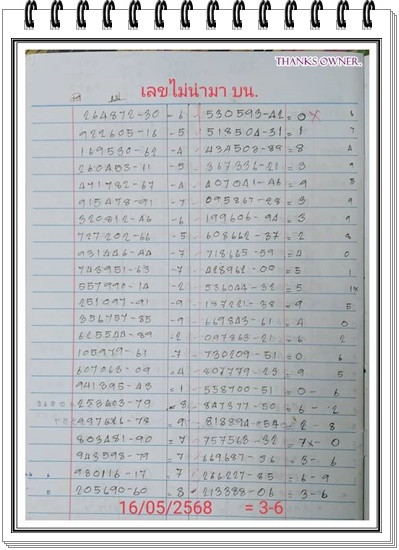 THANKS OWNER.
เลขไม่น่ามา บน.
264872-30 - 6 530593-42 = 0 X 6
922605-16 - 5 518504-31 = 1
169530-62 - 4 434503-89 = 8 4
260453-11 - 5 367336-21 = 3 9
471782-67 - 4 407041-46 = 9 5
915478-91 - 7 095867-28 = 3 9
320812-46 - 6 199606-94 = 3 9
727202-66 - 5 608662-37 = 2 8
931446-44 - 7 718665-59 = 4 0
743951-63 - 7 428962-00 = 5 1
557990-14 - 2 536044-32 = 5
251097-91 - 9 187221-38 = 9 5
356757-85 - 9 669843-61 = 4 0
625544-89 - 2 097863-21 = 6 2
105979-61 - 7 730209-51 = 0 6
607063-09 - 4 806779-23 = 9 5
941395-43 = 1 558700-51 = 0 - 6
253603-79 = 8 847377-50 = 6 - 2
497646-78 = 9 818894-54 = 2 - 8
803481-90 = 7 757563-32 = 7x - 0
943598-79 = 7 669687-36 = 3 - 6
980116-17 = 7 266227-85 = 6 - 9
205690-60 = 8 213388-06 = 3 - 6
16/05/2568 = 3-6